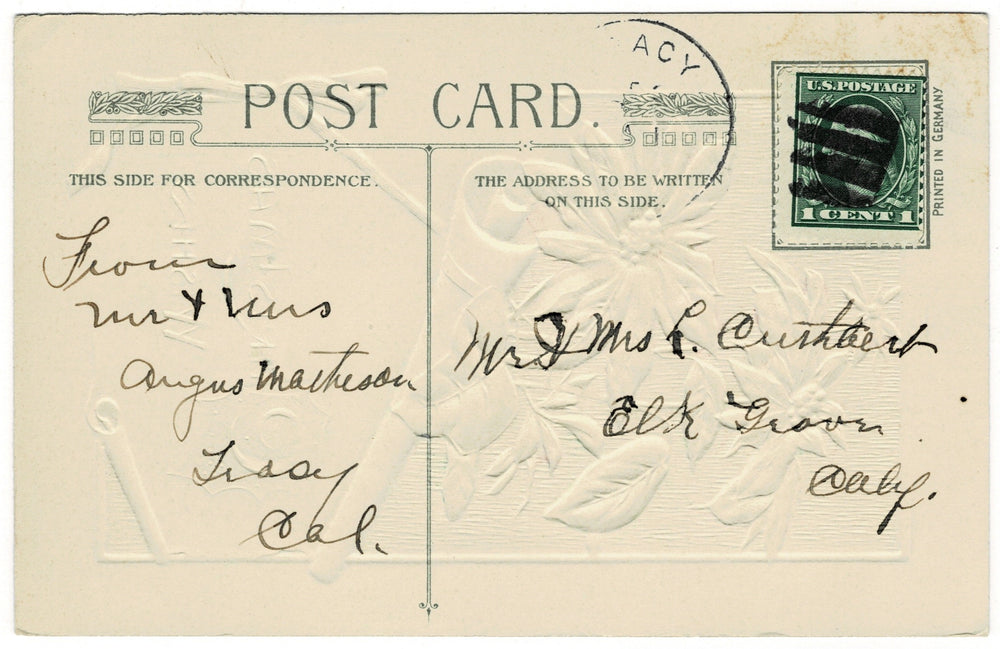 ACY
POST CARD.
THIS SIDE FOR CORRESPONDENCE.
THE ADDRESS TO BE WRITTEN
ON THIS SIDE.
U.S. POSTAGE
1 CENT 1
PRINTED IN GERMANY
From
Mr & Mrs
Angus Matheson
Tracy
Cal.
Mr & Mrs P. Cuthbert
Elk Grove
Calif.